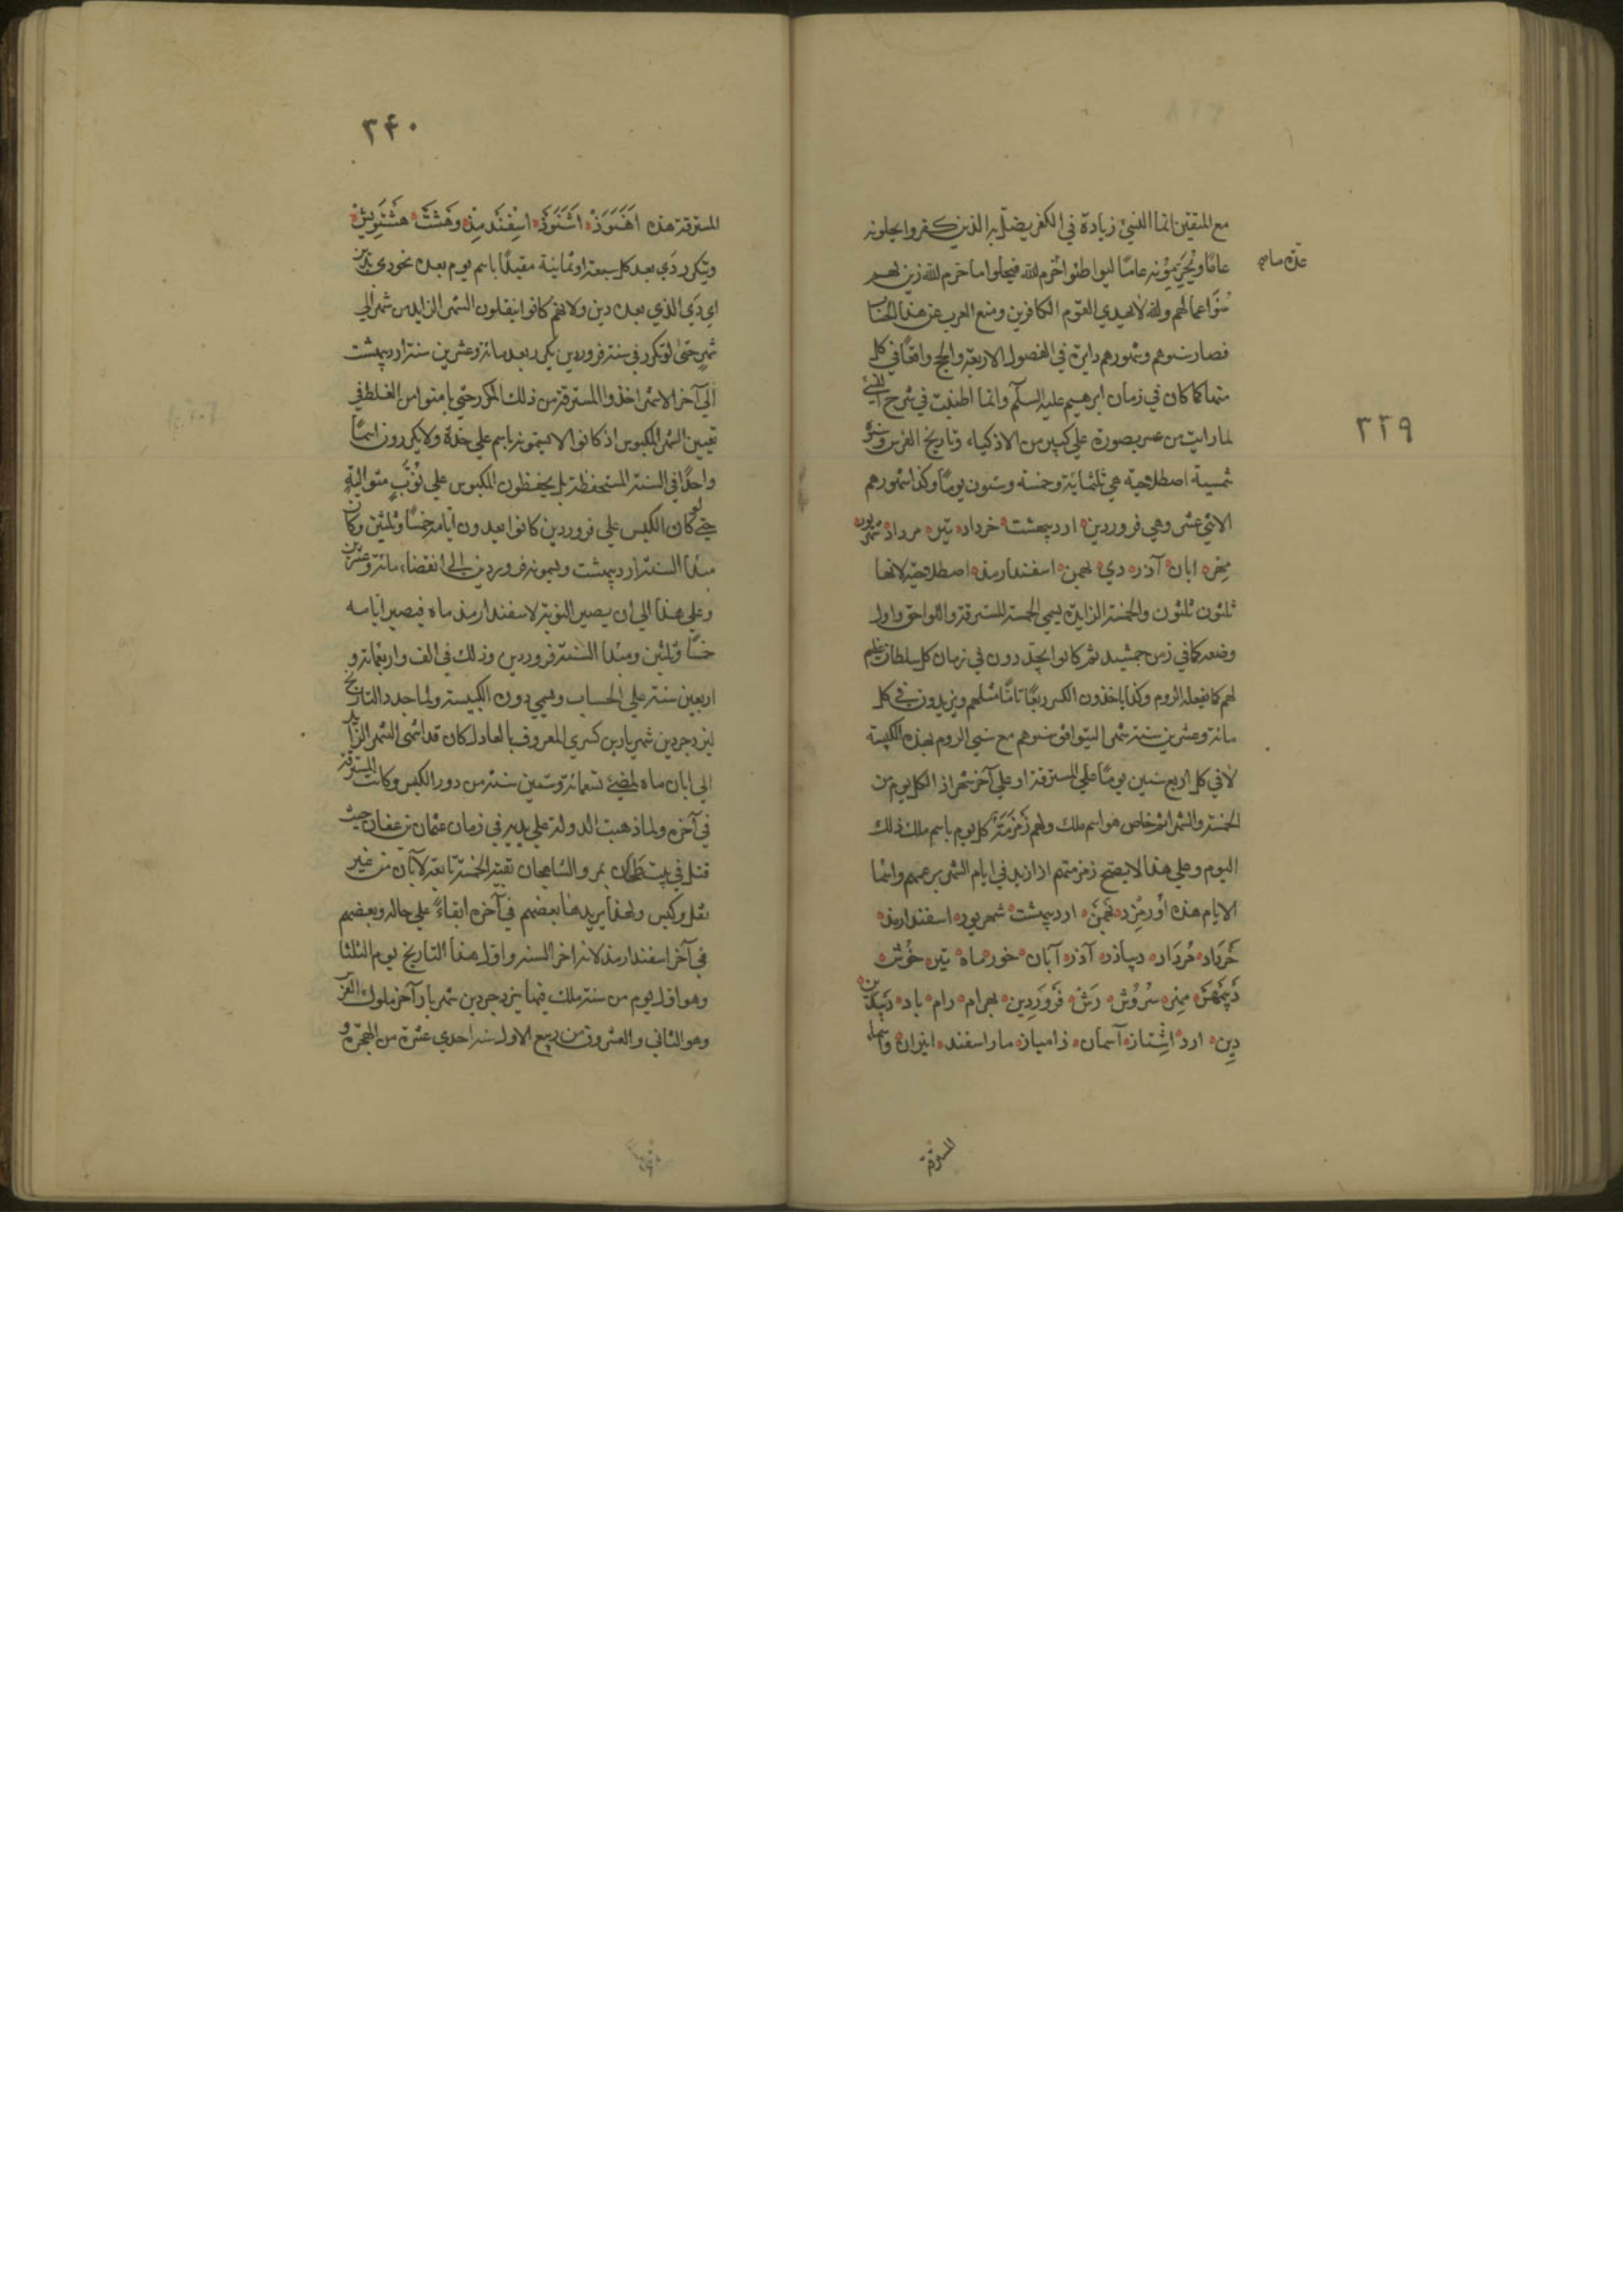 ٣٣٩
مع المتقين انما النسيئ زيادة في الكفر يضل به الذين كفروا يحلونه
عاما ويحرمونه عاما ليواطئوا عدة ما حرم الله فيحلوا ما حرم الله زين لهم
سوء اعمالهم والله لا يهدي القوم الكافرين ومنع العرب عن هذا الحساب
فصار سنوهم وشهورهم دايرة في الفصول الاربعة والحج واقعا في كل
منها كما كان في زمان ابرهيم عليه السلام وانما اطنبت في شرح النسئ
لما رايت من عسر تصوره علي كثير من الاذكياء وتاريخ الفرس وسنوه
شمسية اصطلاحية هي ثلثمائة وخمسة وستون يوما وكذا شهورهم
الاثني عشر وهي فروردين ارديبهشت خرداد تير مرداد شهريور
مهر ابان آذر دي بهمن اسفندارمذ اصطلاحية لانها
ثلثون ثلثون والخمسة الزايدة يسمي الخمسة المسترقة واللواحق واول
وضعه كما في زمن جمشيد ثم كانوا يجددون في زمان كل سلطان عظيم
لهم كما يفعله الروم وكذا ياخذون الكسر ربعا تاما مثلهم ويزيدون في كل
مائة وعشرين سنة شهرا ليتوافق سنوهم مع سني الروم بهذه الكبيسة
لا في كل اربع سنين يوما علي المسترقة او علي آخر شهر اذ لكل يوم من
الخمسة والشهر اسم خاص هو اسم ملك ولهم زمزمة كل يوم باسم ملك ذلك
اليوم وعلي هذا لا يصح زمزمتهم اذا زيد في ايام الشهر بزعمهم واسما
الايام هذه اورمزد بهمن ارديبهشت شهريور اسفندارمذ
خرداد مرداد ديباذر آذر آبان خور ماه تير خوش
ديبمهر مهر سروش رش فروردين بهرام رام باد ديبدين
دين ارد اشتاذ آسمان زامياذ ماراسفند انيران واسماء
المسترقة
عدة ما صح
٣٤٠
المسترقة هذه اهنوذ اشنوذ اسفندمذ وهشت هشتويش
ويتكرر دي بعد كل سبعة او ثمانية مقيدا باسم يوم بعده نحو دي بدين
اي دي الذي بعده دين ولانهم كانوا ينقلون الشهر الزايد من شهر الي
شهر حتي لو تكرر في سنة فروردين يكرر بعد مائة وعشرين سنة ارديبهشت
الي آخر الاشهر اخذوا المسترقة من ذلك المكرر حتي يامنوا من الغلط في
تعيين الشهر المكبوس اذ كانوا لا يسمونه باسم علي حدة ولا يكررون اسما
واحدا في السنة المستحفظة بل يحفظون المكبوس علي نوب متوالية
حتي لو كان الكبس علي فروردين كانوا يعدون ايامه خمسا وثلثين وكان
مبدا السنة ارديبهشت ويسمونه فروردين الي انقضاء مائة وعشرين
وعلي هذا الي ان يصير النوبة لاسفندارمذ ماه فيصير ايامه
خمسا وثلثين ومبدا السنة فروردين وذلك في الف واربعمائة و
اربعين سنة علي الحساب ويسمي دون الكبيسة ولما جدد التاريخ
ليزدجرد بن شهريار بن كسري المعروف بالعادل كان قد انتهي الشهر الزايد
الي ابان ماه لمضي تسعمائة وستين سنة من دور الكبس وكانت المسترقة
في آخره ولما ذهبت الدولة علي يديه في زمان عثمان بن عفان حيث
قتل في بيت طحان بمرو الشاهجان بقيت الخمسة تابعة لآبان من غير
نقل وكبس ولهذا يزيدها بعضهم في آخره ابقاء علي حاله وبعضهم
في آخر اسفندارمذ لانه اخر السنة واول هذا التاريخ يوم الثلثا
وهو اول يوم من سنة ملك فيها يزدجرد بن شهريار آخر ملوك الفرس
وهو الثاني والعشرون من ربيع الاول سنة احدي عشرة من الهجرة و